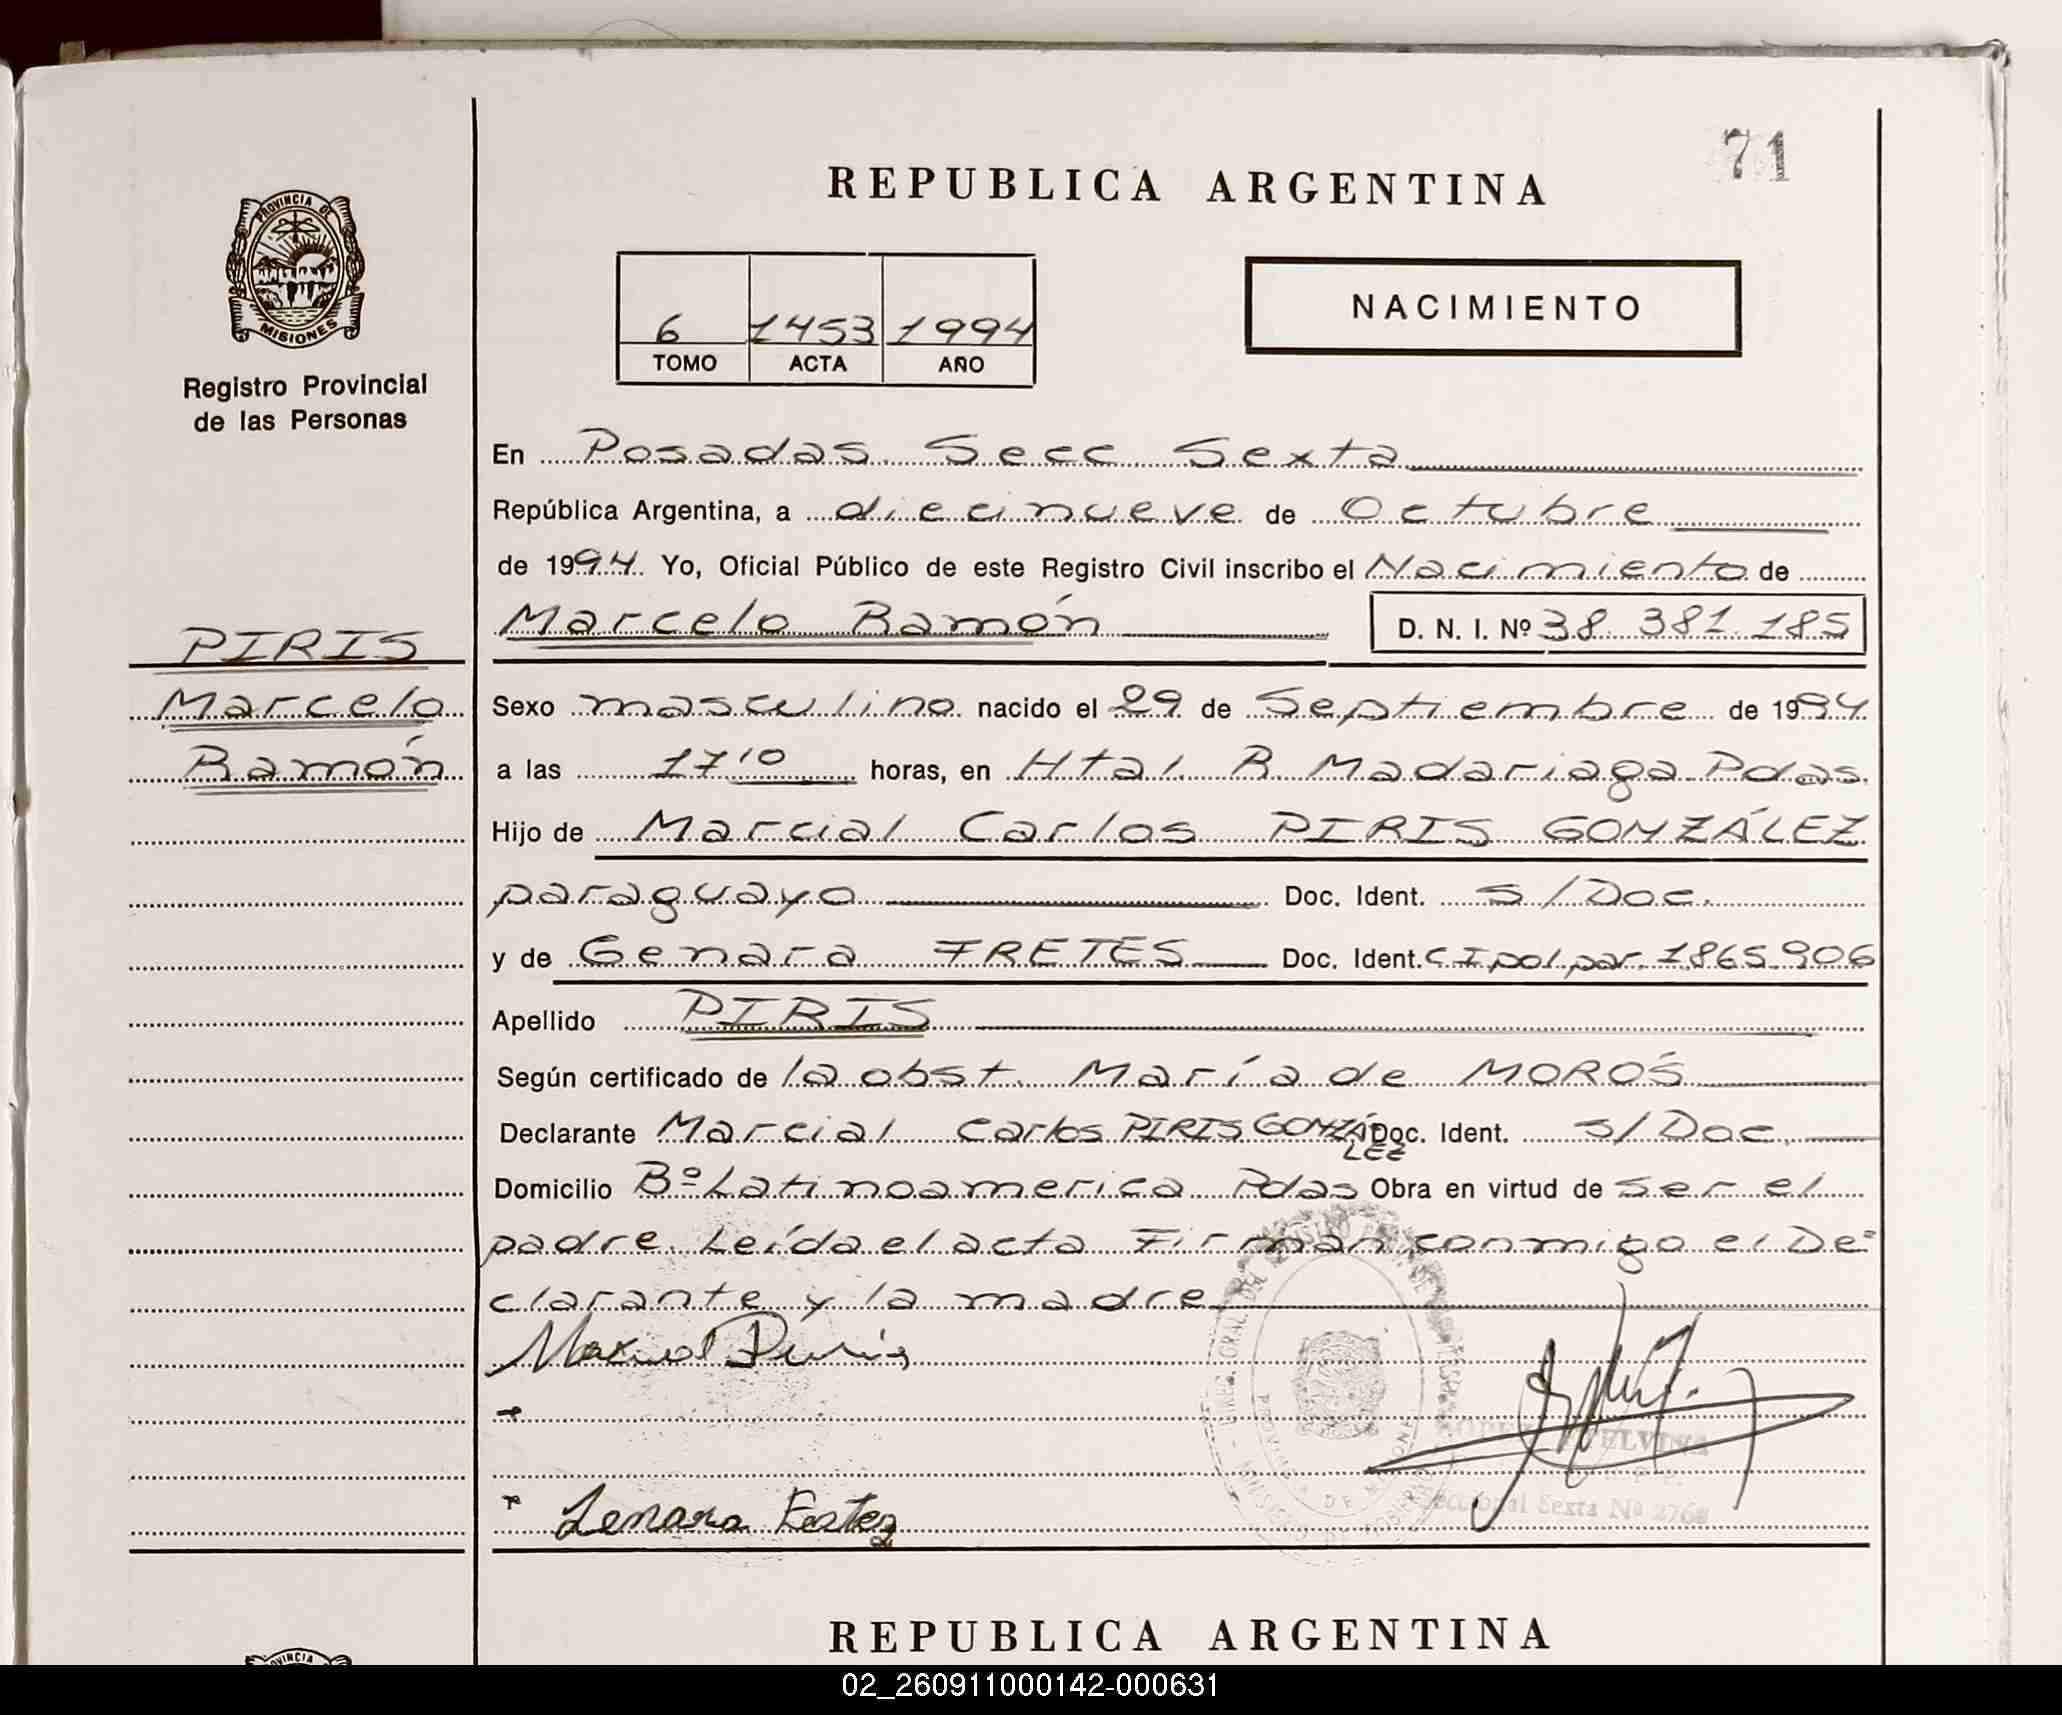 71
REPUBLICA ARGENTINA
PROVINCIA DE
MISIONES
Registro Provincial
de las Personas
6 1453 1994
TOMO ACTA AÑO
NACIMIENTO
En Posadas Secc Sexta
República Argentina, a diecinueve de Octubre
de 1994 Yo, Oficial Público de este Registro Civil inscribo el Nacimiento de
Marcelo Ramón D. N. I. Nº 38.381.185
PIRIS
Marcelo
Ramón
Sexo masculino nacido el 29 de Septiembre de 1994
a las 17'10 horas, en Htal. R. Madariaga Pdas.
Hijo de Marcial Carlos PIRIS GONZÁLEZ
paraguayo Doc. Ident. s/Doc.
y de Genara FRETES Doc. Ident. C I pol. par. 1865.906
Apellido PIRIS
Según certificado de la obst. María de MOROS
Declarante Marcial Carlos PIRIS GONZÁLEZ Doc. Ident. s/Doc.
Domicilio Bº Latinoamerica Pdas Obra en virtud de ser el
padre. Leída el acta Firman conmigo el De=
clarante y la madre
Seccional Sexta Nº 2768
REPUBLICA ARGENTINA
02_260911000142-000631